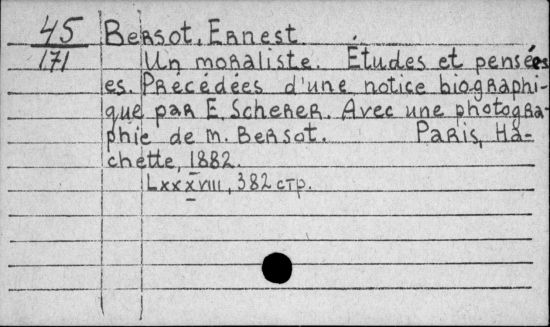 45 Bersot, Ernest
171 Un moraliste. Études et pensées
es. Précédées d'une notice biographi-
que par E. Scherer. Avec une photogra-
phie de M. Bersot. Paris, Ha-
chette, 1882.
LXXXVIII, 382 стр.